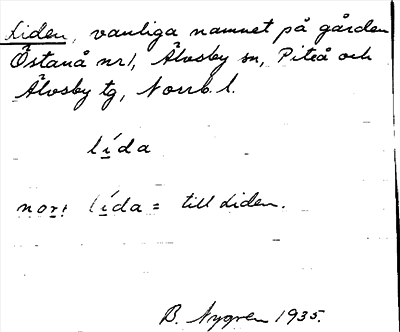 Liden, vanliga namnet på gården
Östanå nr1, Älvsby sn, Piteå och
Älvsby tg, Norrb. l.
lída
nort lída = till Liden.
B. Nygren 1935.